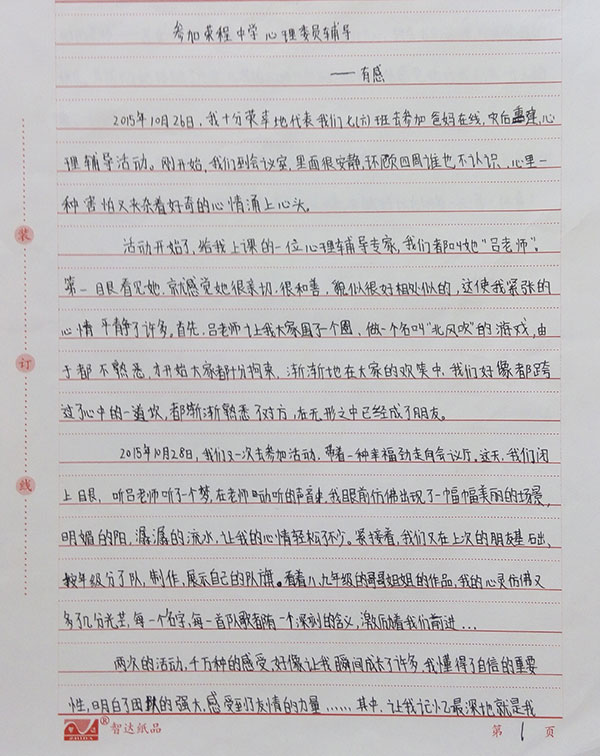 参加荣程中学心理委员辅导
——有感
2015年10月26日,我十分荣幸地代表我们七(六)班去参加爸妈在线,灾后重建,心
理辅导活动。刚开始,我们到会议室,里面很安静,环顾四周谁也不认识,心里一
种害怕又夹杂着好奇的心情涌上心头。
活动开始了,给我上课的一位心理辅导专家,我们都叫她“吕老师”。
第一眼看见她,就感觉她很亲切,很和善,貌似很好相处似的,这使我紧张的
心情平静了许多。首先,吕老师让我大家围了一个圈,做一个名叫“北风吹”的游戏,由
于都不熟悉,才开始大家都十分拘束,渐渐地在大家的欢笑中,我们好像都跨
过了心中的一道坎,都渐渐熟悉了对方,在无形之中已经成了朋友。
2015年10月28日,我们又一次去参加活动,带着一种幸福劲走向会议厅。这天,我们闭
上眼,听吕老师听了一个梦,在老师动听的声音中,我眼前仿佛出现了一幅幅美丽的场景,
明媚的阳,潺潺的流水,让我的心情轻松了不少。紧接着,我们又在上次的朋友基石出,
按年级分了队,制作,展示自己的队旗。看着八、九年级的哥哥姐姐的作品,我的心灵仿佛又
多了几分光芒,每一个名字,每一首队歌都有一个深刻的含义,激励着我们前进...
两次的活动,千万种的感受,好像让我瞬间成长了许多,我懂得了自信的重要
性,明白了团队的强大,感受到了友情的力量……其中,让我记忆最深地就是我
装
订
线
ZHIDA
®
智达纸品
第1页